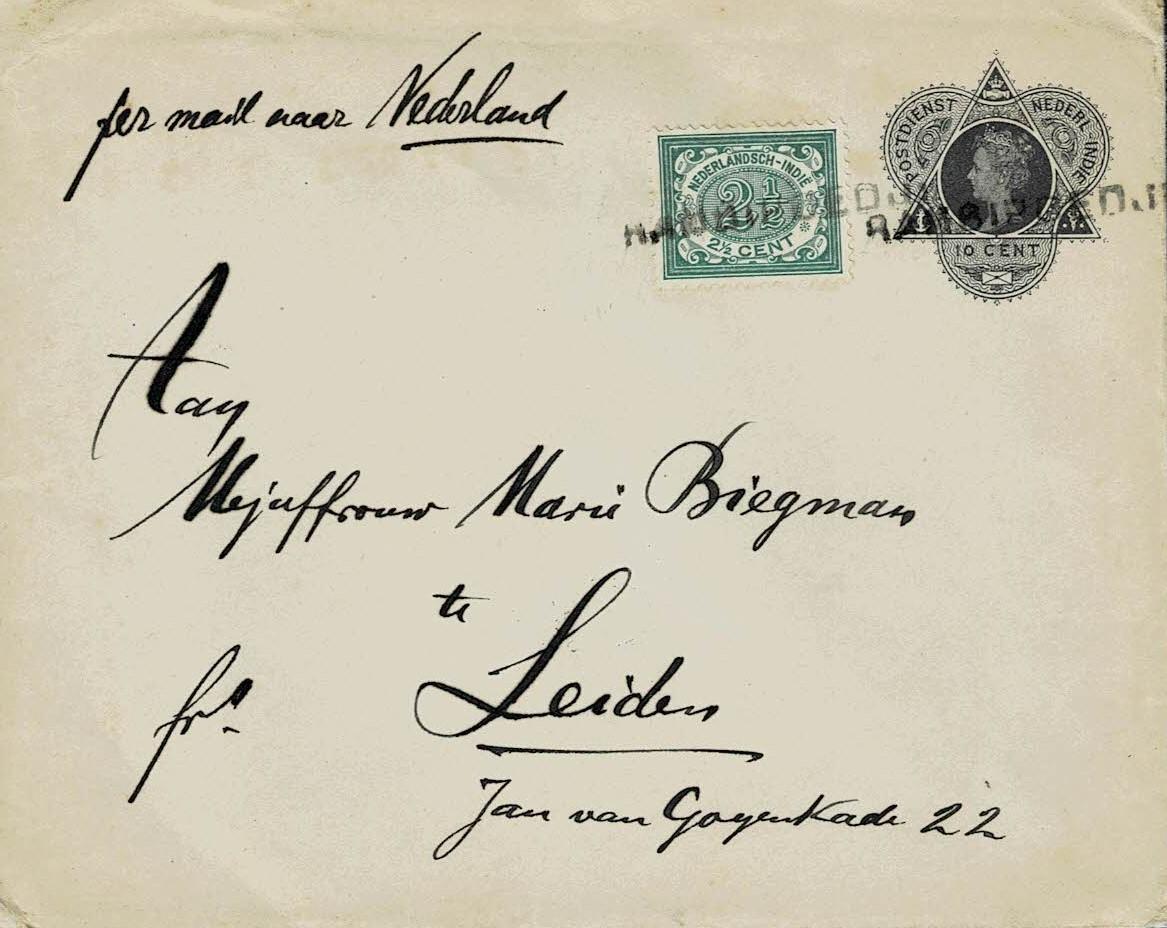 per mail naar Nederland
NEDERLANDSCH-INDIË
2½
2½ CENT
POSTDIENST NEDERL-INDIE
10 CENT
Aan
Mejuffrouw Marie Biegman
te
Leiden
fro.
Jan van Goyenkade 22